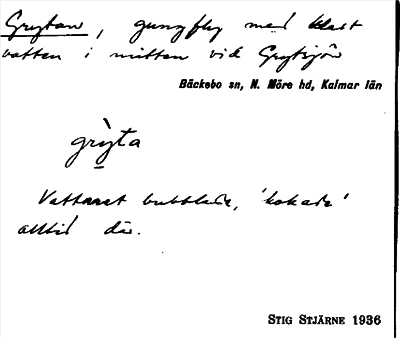 Grytan, gungfly med klart
vatten i mitten vid Grytsjön
Bäckebo sn, N. Möre hd, Kalmar län
grỳta
Vattnet bubblade, 'kokade'
alltid där.
STIG STJÄRNE 1936